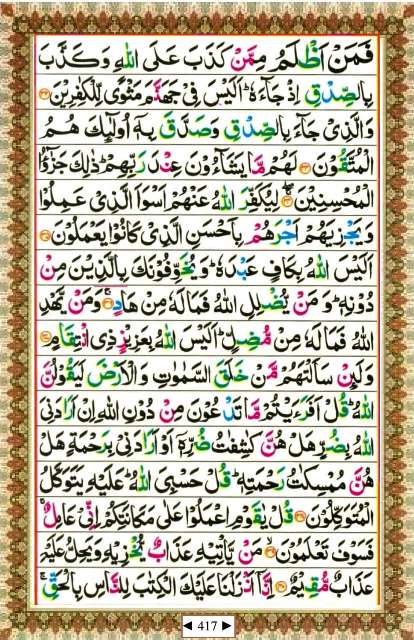 فَمَنْ اَظْلَمُ مِمَّنْ كَذَبَ عَلَى اللهِ وَكَذَّبَ
بِالصِّدْقِ اِذْ جَآءَهٗ ؕ اَلَيْسَ فِيْ جَهَنَّمَ مَثْوًى لِّلْكٰفِرِيْنَ ﴿۳۲﴾
وَالَّذِيْ جَآءَ بِالصِّدْقِ وَصَدَّقَ بِهٖۤ اُولٰٓئِكَ هُمُ
الْمُتَّقُوْنَ ﴿۳۳﴾ لَهُمْ مَّا يَشَآءُوْنَ عِنْدَ رَبِّهِمْ ؕ ذٰلِكَ جَزٰٓؤُا
الْمُحْسِنِيْنَ ﴿۳۴﴾ لِيُكَفِّرَ اللهُ عَنْهُمْ اَسْوَاَ الَّذِيْ عَمِلُوْا
وَيَجْزِيَهُمْ اَجْرَهُمْ بِاَحْسَنِ الَّذِيْ كَانُوْا يَعْمَلُوْنَ ﴿۳۵﴾
اَلَيْسَ اللهُ بِكَافٍ عَبْدَهٗ ؕ وَيُخَوِّفُوْنَكَ بِالَّذِيْنَ مِنْ
دُوْنِهٖ ؕ وَمَنْ يُّضْلِلِ اللهُ فَمَا لَهٗ مِنْ هَادٍ ﴿۳۶﴾ وَمَنْ يَّهْدِ
اللهُ فَمَا لَهٗ مِنْ مُّضِلٍّ ؕ اَلَيْسَ اللهُ بِعَزِيْزٍ ذِي انْتِقَامٍ ﴿۳۷﴾
وَلَئِنْ سَاَلْتَهُمْ مَّنْ خَلَقَ السَّمٰوٰتِ وَالْاَرْضَ لَيَقُوْلُنَّ
اللهُ ؕ قُلْ اَفَرَءَيْتُمْ مَّا تَدْعُوْنَ مِنْ دُوْنِ اللهِ اِنْ اَرَادَنِيَ
اللهُ بِضُرٍّ هَلْ هُنَّ كٰشِفٰتُ ضُرِّهٖۤ اَوْ اَرَادَنِيْ بِرَحْمَةٍ هَلْ
هُنَّ مُمْسِكٰتُ رَحْمَتِهٖ ؕ قُلْ حَسْبِيَ اللهُ ؕ عَلَيْهِ يَتَوَكَّلُ
الْمُتَوَكِّلُوْنَ ﴿۳۸﴾ قُلْ يٰقَوْمِ اعْمَلُوْا عَلٰى مَكَانَتِكُمْ اِنِّيْ عَامِلٌ ۚ
فَسَوْفَ تَعْلَمُوْنَ ﴿۳۹﴾ مَنْ يَّاْتِيْهِ عَذَابٌ يُّخْزِيْهِ وَيَحِلُّ عَلَيْهِ
عَذَابٌ مُّقِيْمٌ ﴿۴۰﴾ اِنَّاۤ اَنْزَلْنَا عَلَيْكَ الْكِتٰبَ لِلنَّاسِ بِالْحَقِّ ۚ
◄ 417 ►